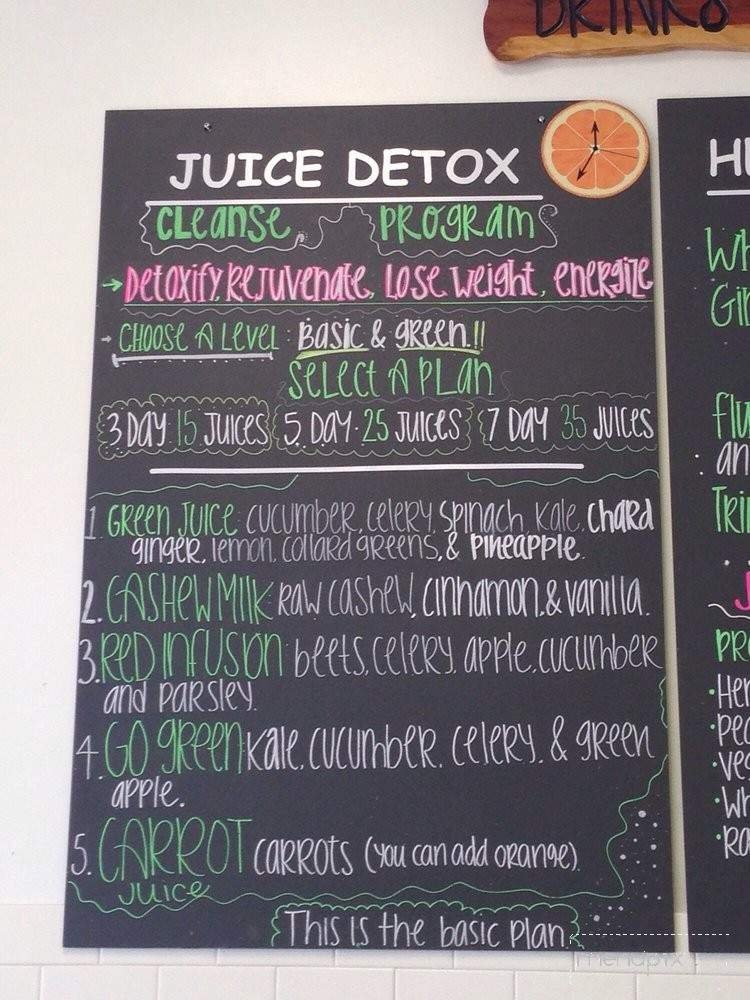 DRINKS
JUICE DETOX
CLEANSE PROGRAM
DETOXIFY, REJUVENATE, LOSE WEIGHT, ENERGIZE
CHOOSE A LEVEL: BASIC & GREEN!!
SELECT A PLAN
3 DAY 15 JUICES 5 DAY · 25 JUICES 7 DAY 35 JUICES
1. GREEN JUICE: CUCUMBER, CELERY, SPINACH, KALE, CHARD
GINGER, LEMON, COLLARD GREENS, & PINEAPPLE.
2. CASHEW MILK RAW CASHEW, CINNAMON, & VANILLA.
3. RED INFUSION beets, celery, apple, cucumber
and parsley.
4. GO GREEN Kale, cucumber, celery, & green
apple.
5. CARROT CARROTS (you can add orange)
Juice
This is the basic plan.
menupix